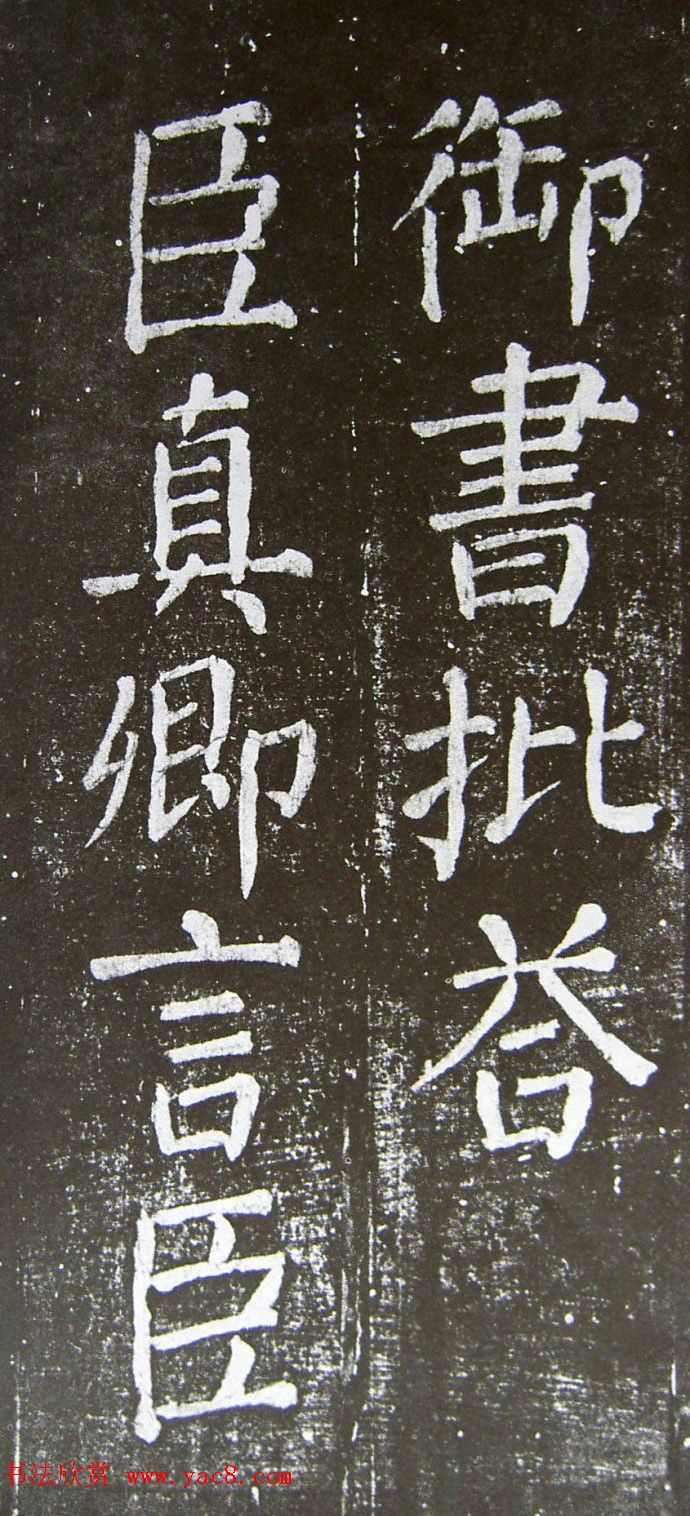 御書批荅
臣真卿言臣
书法欣赏 www.yac8.com